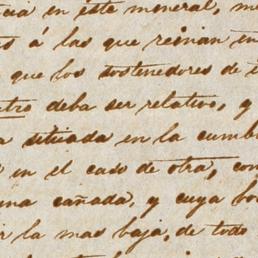 cia en este mineral, me
á las que reinan en
que los sostenedores de
tro deba ser relativo, y
a situada en la cumb
en el caso de otra, con
una cañada, y cuya bo
ir la mas baja, de todo